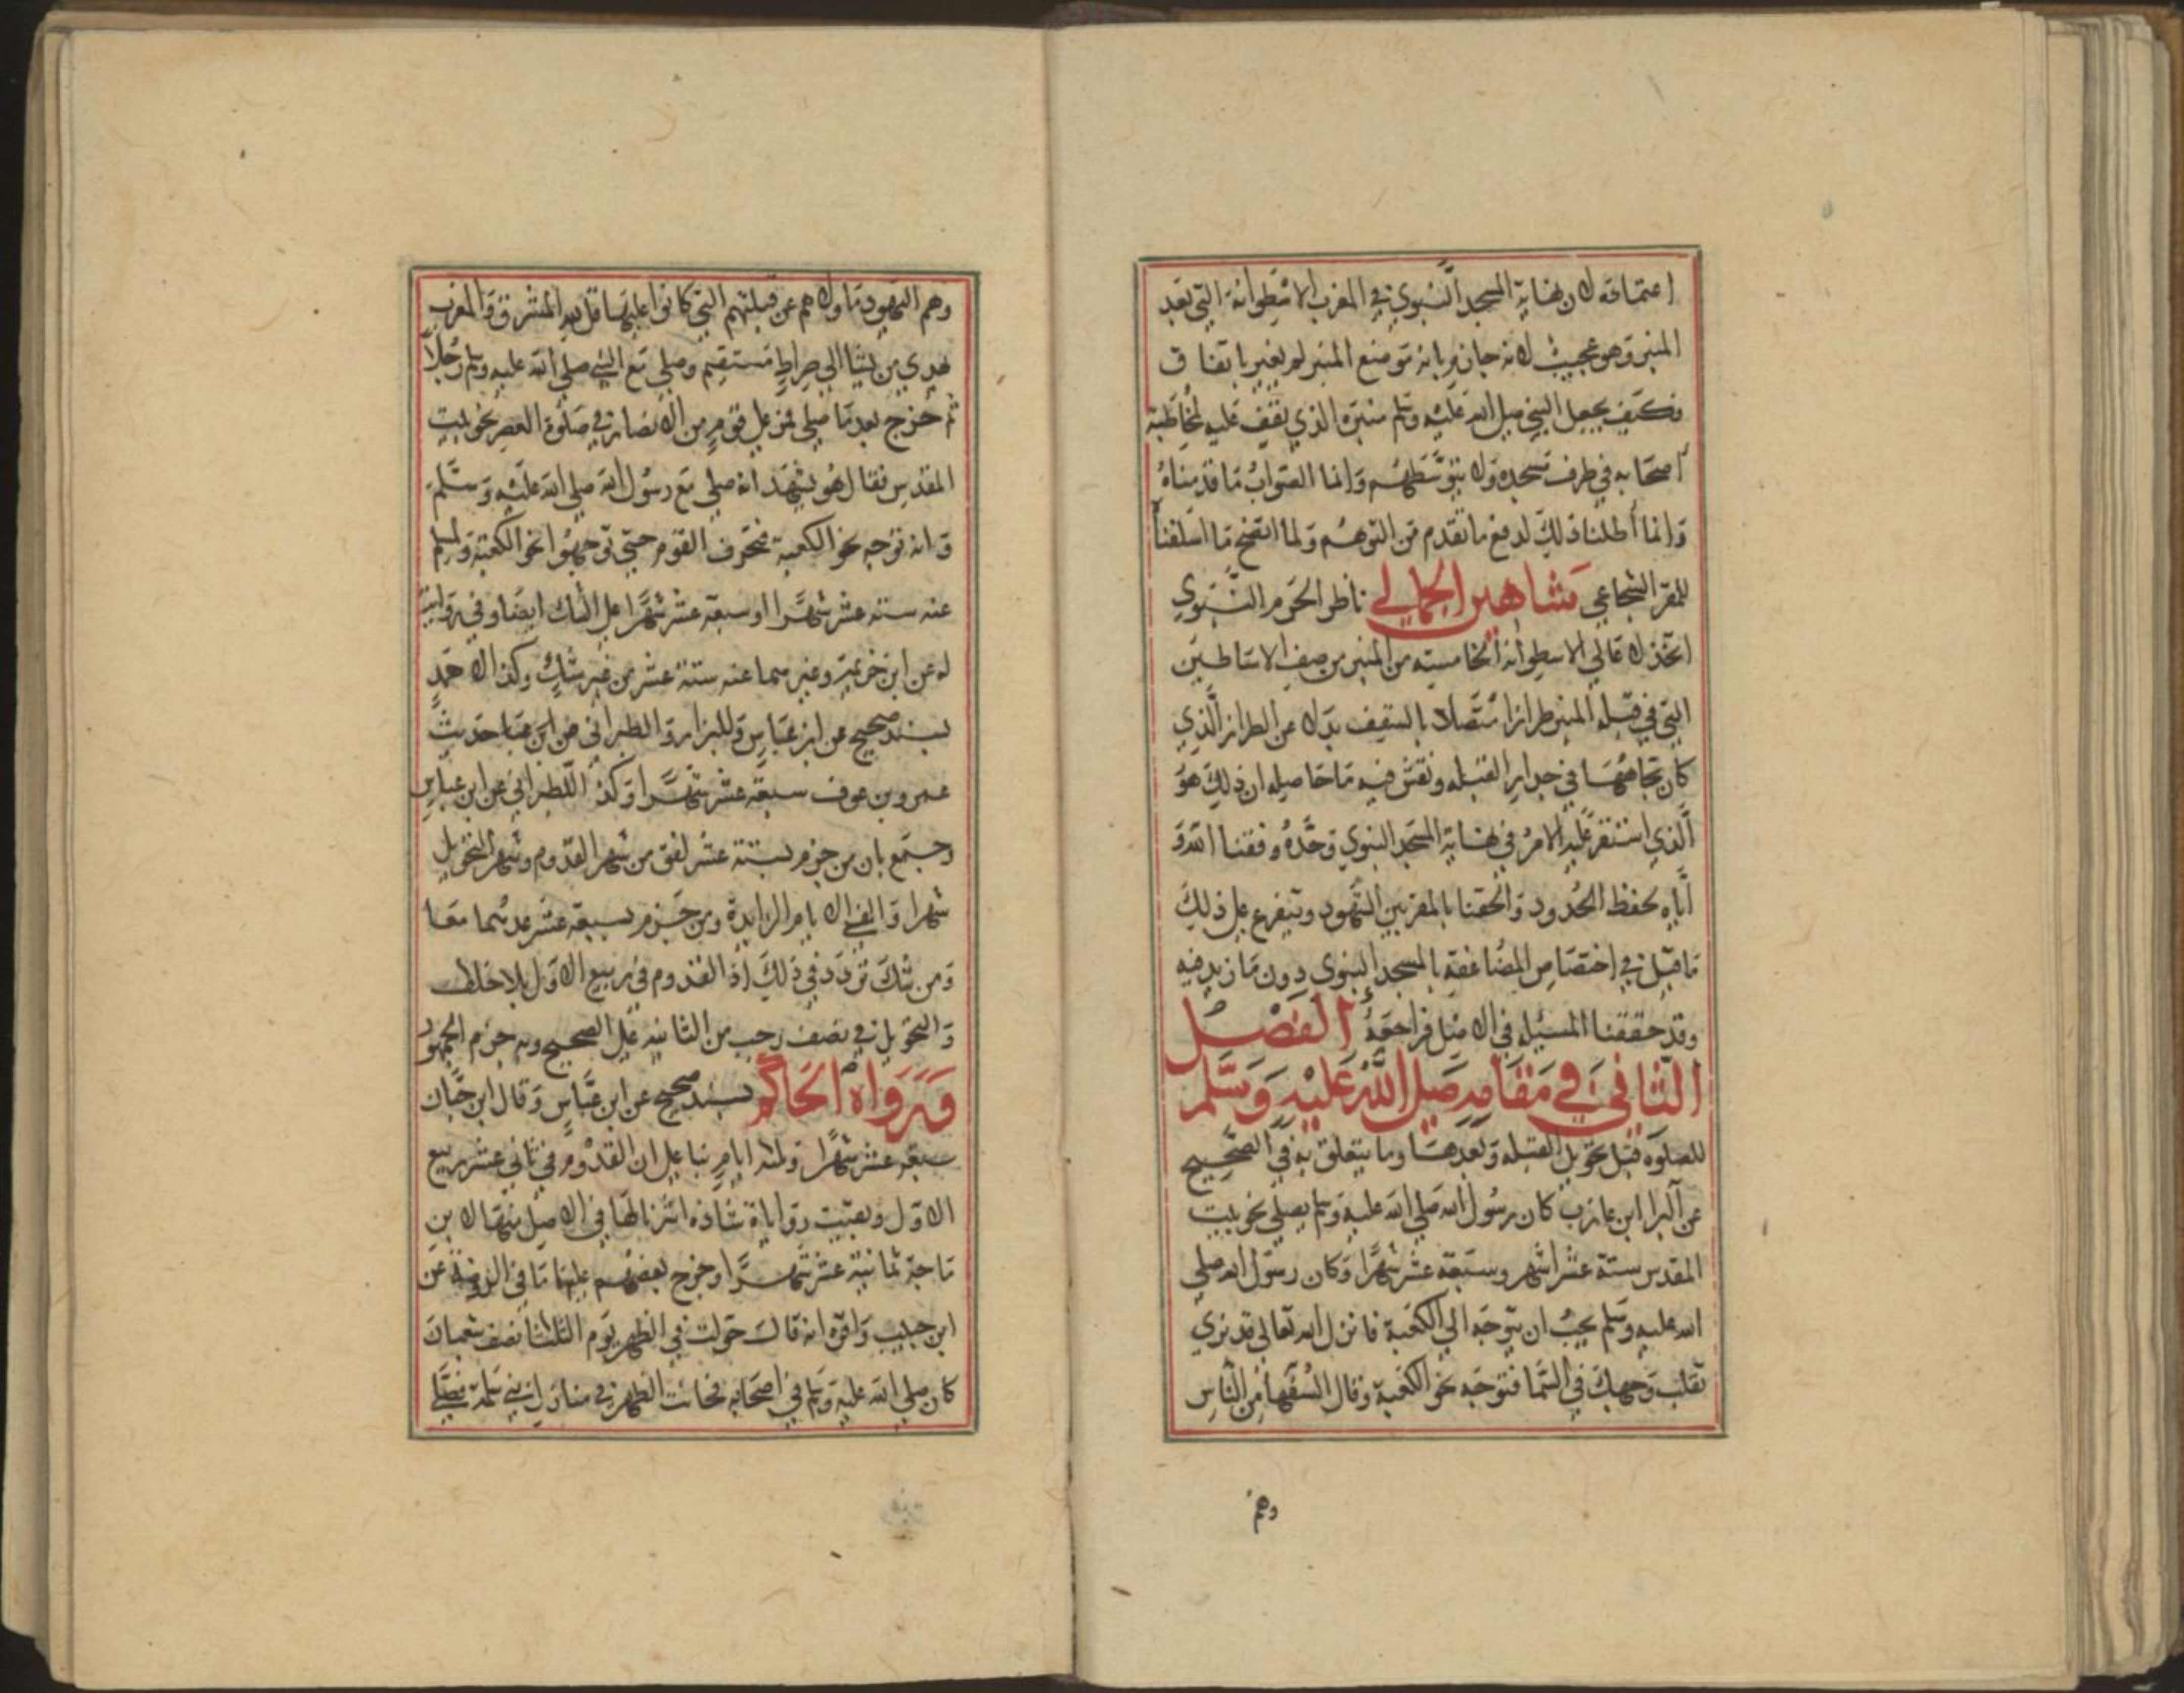 اعتماده لان نهاية المسجد النبوي في المغرب الاسطوانة التي بعد
المنبر وهو عجيب لانه جازم بانه موضع المنبر لم يغير باتفاق
فكيف يجعل النبي صلى الله عليه وسلم منبره الذي يقف عليه لمخاطبة
اصحابه في طرف مسجده ولا يتوسطهم وانما الصواب ما قدمناه
وانما أطلنا ذلك لدفع ما تقدم من التوهم ولما اتضح ما اسلفنا
للمقر الشجاعي شاهين الجمالي ناظر الحرم النبوي
اتخذ لاعالي الاسطوانة الخامسة من المنبر من صف الاساطين
التي في قبلة المنبر طرازا متصلا بالسقف بدلا عن الطراز الذي
كان تجاهها في جدار القبلة ونقش فيه ما حاصله ان ذلك هو
الذي استقر عليه الامر في نهاية المسجد النبوي وحده وفقنا الله و
اياه لحفظ الحدود والحقنا بالمقربين الشهود ويتفرع على ذلك
ما قيل في اختصاص المضاعفة بالمسجد النبوي دون ما زيد فيه
وقد حققنا المسيلة في الاصل فراجعه الفصل
الثاني في مقامه صلى الله عليه وسلم
للصلوة قبل تحويل القبلة وبعدها وما يتعلق به في الصحيح
عن البرا ابن عازب كان رسول الله صلى الله عليه وسلم يصلي نحو بيت
المقدس ستة عشر اشهر وسبعة عشر شهرا وكان رسول الله صلى
الله عليه وسلم يحب ان يتوجه الى الكعبة فانزل الله تعالى قد نرى
تقلب وجهك في السما فتوجه نحو الكعبة وقال السفها من الناس
وهم
وهم اليهود ما ولاهم عن قبلتهم التي كانوا عليها قل لله المشرق والمغرب
يهدي من يشا الى صراط مستقيم وصلى مع النبي صلى الله عليه وسلم رجلا
ثم خرج بعد ما صلى فمر على قوم من الانصار في صلوة العصر نحو بيت
المقدس فقال هو يشهد انه صلى مع رسول الله صلى الله عليه وسلم
وانه توجه نحو الكعبة فتحرف القوم حتى توجهوا نحو الكعبة ولمسلم
عنه ستة عشر شهرا او سبعة عشر شهرا على الشك ايضا وفي رواية
له عن ابن خزيمة وغيرهما عنه ستة عشر من غير شك وكذا لاحمد
بسند صحيح عن ابن عباس وللبزار والطبراني من حديث
عمرو بن عوف سبعة عشر شهرا وكذا للطبراني عن ابن عباس
وجمع بان من جزم بستة عشر لفق من شهر القدوم وشهر التحويل
شهرا والغي الايام الزايدة ومن جزم بسبعة عشر عدهما معا
ومن شك تردد في ذلك اذ القدوم في ربيع الاول بلا خلاف
والتحويل في نصف رجب من الثانية على الصحيح وبه جزم الجمهور
ورواه الحاكم بسند صحيح عن ابن عباس وقال ابن حبان
سبعة عشر شهرا وثلثة ايام بنا على ان القدوم في ثاني عشر ربيع
الاول وبقيت رواياة شاذة اشرنا لها في الاصل منها لابن
ماجة ثمانية عشر شهرا وخرج بعضهم عليها ما في الروضة عن
ابن حبيب واقره انه قال حولت في الظهر يوم الثلثا نصف شعبان
كان صلى الله عليه وسلم في اصحابه فحانت الظهر في منازل بني سلمة فصلى